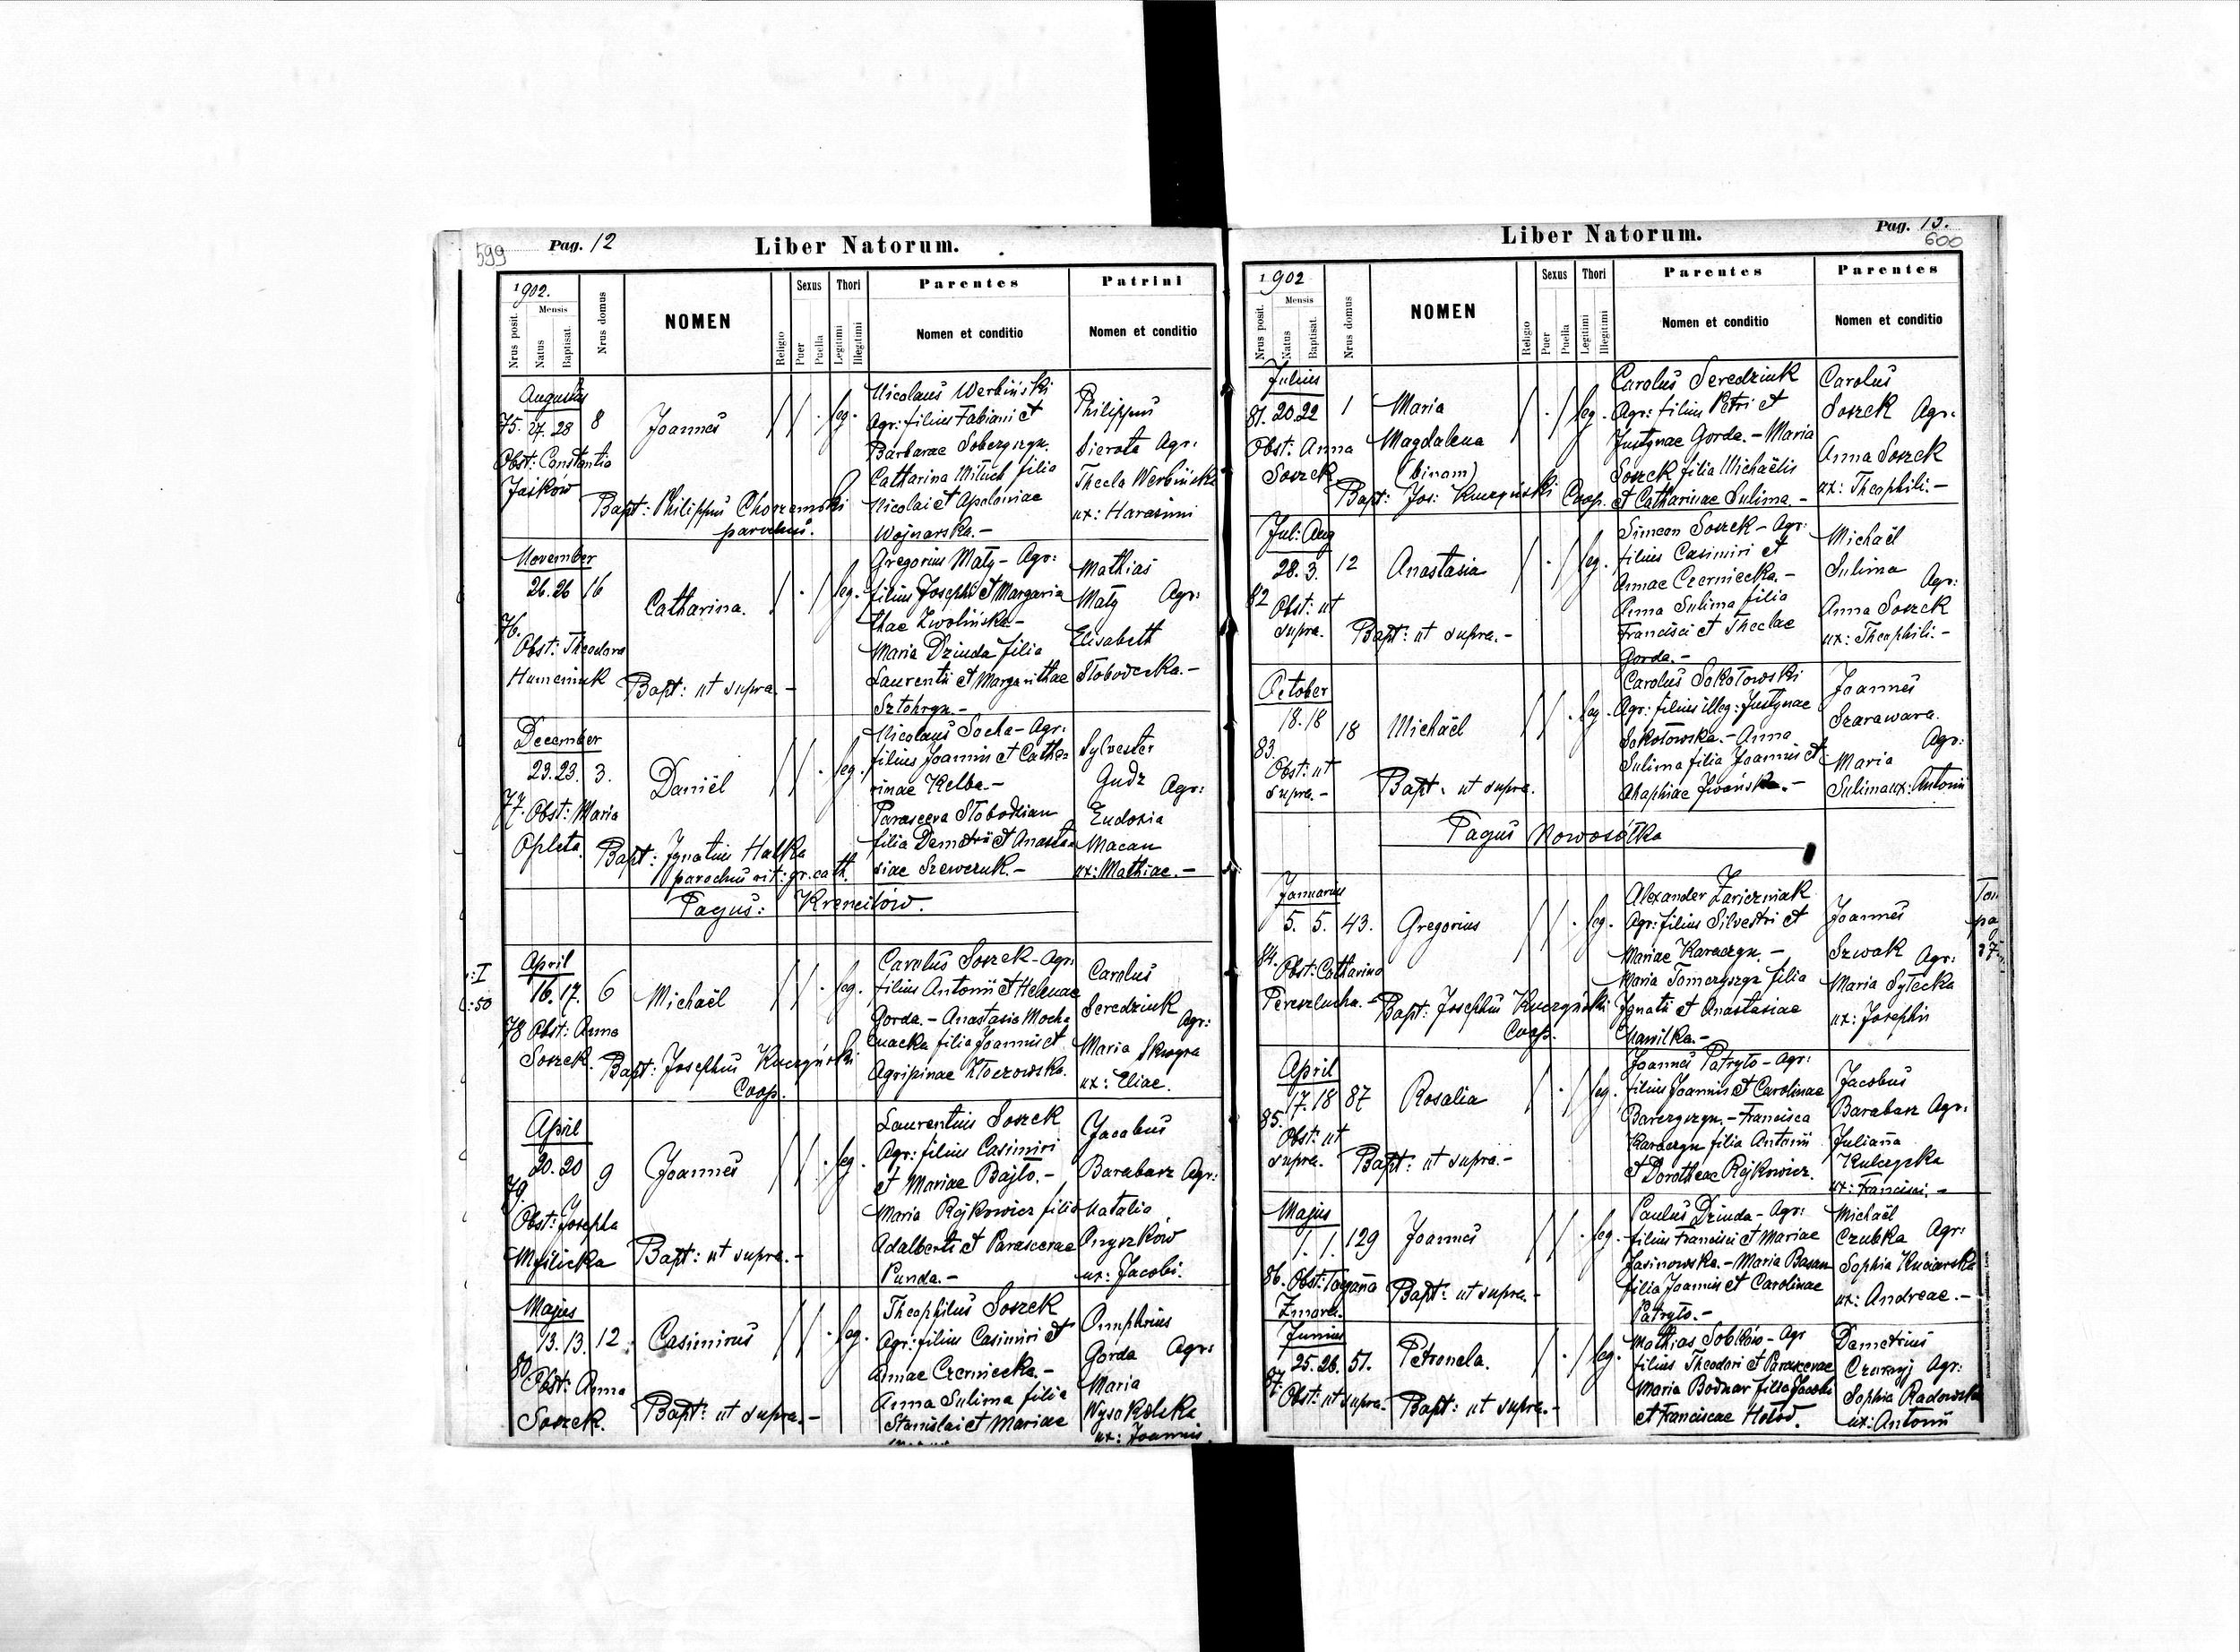 599 Pag. 12 Liber Natorum.
1902. Mensis
Nrus posit. Natus Baptisat. Nrus domus NOMEN Religio Sexus Puer Puella Thori Legitimi Illegitimi Parentes Nomen et conditio Patrini Nomen et conditio
Augustus
75. 27. 28 8 Joannes leg.
Obst: Constantia
Jaśków
Bapt: Philippus Chorzemski
parochus.
Nicolaus Werbiński
Agr: filius Fabiani et
Barbarae
Catharina Mituch filia
Nicolai et Apoloniae
Wojnarska.-
Philippus
Sierota Agr:
Thecla Werbińska
ux: Harasimi
November
26. 26 16 Catharina. leg.
76.
Obst: Theodora
Humeniuk Bapt: ut supra.-
Gregorius Mały - Agr:
filius Josephi et Margari
thae Zwolińska.-
Maria Dziuda filia
Laurentii et Margarithae
Sztohryn.-
Mathias
Mały Agr:
Elisabeth
Słobodecka.-
December
23. 23. 3. Daniël leg.
77. Obst: Maria
Opleta. Bapt: Ignatius Halka
parochus rit: gr. cath.
Nicolaus Socha - Agr:
filius Joannis et Catha=
rinae Kelba.-
Parasceva Słobodzian
filia Demetrii et Anasta
siae Szewczuk.-
Sylvester
Gudz Agr:
Eudoxia
Macan
ux: Mathiae.-
Pagus: Krencilów.
:I
:50
April
16. 17. 6 Michaël leg.
78 Obst: Anna
Soszek. Bapt: Josephus Kuczyński
Coop.
Carolus Soszek - Agr:
filius Antonii et Helenae
Gorda.- Anastasia Mocha
nacka filia Joannis et
Agripinae Kłoczowska.
Carolus
Seredziuk
Agr:
Maria
ux: Eliae.
April
20. 20 9 Joannes leg.
79.
Obst: Josepha
Milicka Bapt: ut supra.-
Laurentius Soszek
Agr: filius Casimiri
et Mariae Bajło.-
Maria Rejkowicz filia
Adalberti et Parascevae
Punda.-
Jacobus
Barabasz Agr:
Natalia
Onyszków
ux: Jacobi.
Majus
13. 13. 12. Casimirus leg.
80
Obst: Anna
Soszek. Bapt: ut supra.-
Theophilus Soszek
Agr: filius Casimiri et
Annae Czerniecka.-
Anna Sulima filia
Stanislai et Mariae
Onuphrius
Gorda Agr:
Maria
Wysokolska
ux: Joannis.
Liber Natorum. Pag. 13.
600
1902 Mensis
Nrus posit. Natus Baptisat. Nrus domus NOMEN Religio Sexus Puer Puella Thori Legitimi Illegitimi Parentes Nomen et conditio Parentes Nomen et conditio
Julius
81. 20. 22 1 Maria leg.
Obst: Anna Magdalena
Soszek (binom)
Bapt: Jos: Kuczyński Coop.
Carolus Seredziuk
Agr: filius Petri et
Justynae Gorda.- Maria
Soszek filia Michaëlis
et Catharinae Sulima.-
Carolus
Soszek Agr:
Anna Soszek
ux: Theophili.-
Jul: Aug
28. 3. 12 Anastasia leg.
82
Obst: ut
supra. Bapt: ut supra.-
Simeon Soszek - Agr:
filius Casimiri et
Annae Czerniecka.-
Anna Sulima filia
Francisci et Theclae
Gorda.-
Michaël
Sulima
Agr:
Anna Soszek
ux: Theophili.-
October
18. 18 18 Michaël leg.
83.
Obst: ut
supra.- Bapt: ut supra.
Carolus Sokołowski
Agr: filius illeg: Justynae
Sokołowska.- Anna
Sulima filia Joannis et
Ahaphiae Iwańska.-
Joannes
Szarawara.
Agr:
Maria
Sulima ux: Antonii
Pagus Nowosółka
Januarius
5. 5. 43. Gregorius leg.
84.
Obst: Catharina
Pereszlucha.- Bapt: Josephus Kuczyński
Coop.
Alexander Zariczniak
Agr: filius Silvestri et
Mariae Karaczyn.-
Maria Tomczyszyn filia
Ignatii et Anastasiae
Hawilka.-
Joannes
Szwak Agr:
Maria Sytecka
ux: Josephi
Tom
pag
April
17. 18 87 Rosalia leg.
85.
Obst: ut
supra. Bapt: ut supra.-
Joannes Patryło - Agr:
filius Joannis et Carolinae
Barczyszyn.- Francisca
Karaczyn filia Antonii
et Dorotheae Rejkowicz.
Jacobus
Barabasz Agr:
Juliana
Kulczycka
ux: Francisci.-
Majus
1. 1. 129 Joannes leg.
86. Obst: Tacyana
Zmora. Bapt: ut supra.-
Paulus Dziuda - Agr:
filius Francisci et Mariae
Jasinowska.- Maria Basan
filia Joannis et Carolinae
Patryło.-
Michaël
Czubka Agr:
Sophia Kuciarska
ux: Andreae.-
Junius
25. 26. 51. Petronela. leg.
87.
Obst: ut supra. Bapt: ut supra.-
Mathias Sobków - Agr
filius Theodori et Parascevae
Maria Bodnar filia Jacobi
et Franciscae Hołod.
Demetrius
Czornyj Agr:
Sophia Radowska
ux: Antonii